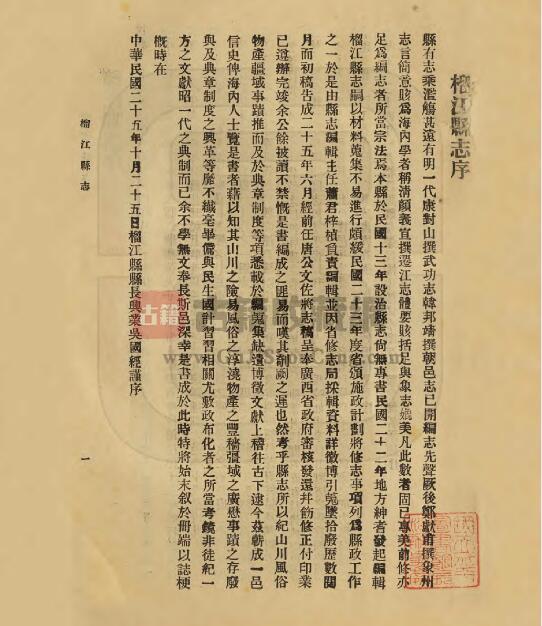 榴江縣志序
縣有志乘濫觴甚遠有明一代康對山撰武功志韓邦靖撰朝邑志已開編志先聲厥後鄭獻甫撰象州
志言簡意賅爲海內學者稱清顏義宣撰遷江志體要賅括足與象志媲美凡此數者固已專美前修亦
足爲編志者所當宗法焉本縣於民國十三年設治縣志尙無專書民國二十二年地方紳耆發起編輯
榴江縣志嗣以材料蒐集不易進行頗緩民國二十三年度省頒施政計劃將修志事項列爲縣政工作
之一於是由縣志編輯主任蕭君梓楨負責編輯並因省修志局採輯資料詳徵博引蒐墜拾廢歷數閱
月而初稿告成二十五年六月經前任唐公文佐將志稿呈奉廣西省政府審核發還幷飭修正付印業
已遵辦完竣余公餘披讀不禁慨是書編成之匪易而嘆其剞劂之遲也然考乎縣志所以紀山川風俗
物產疆域事蹟推而及於典章制度等項悉載於編蒐集缺遺博徵文獻上稽往古下逮今茲蘄成一邑
信史俾海內人士覽是書者藉以知其山川之險易風俗之淳澆物產之豐穡疆域之廣袤事蹟之存廢
與及典章制度之興革等靡不纖毫畢備與民生國計習習相關尤敷政布化者之所當考鏡非徒紀一
方之文獻昭一代之典制而已余不學無文奉長斯邑深幸是書成於此時特將始末叙於冊端以誌梗
概時在
中華民國二十五年十月二十五日榴江縣縣長興業吳國經謹序
榴江縣志
一
古籍